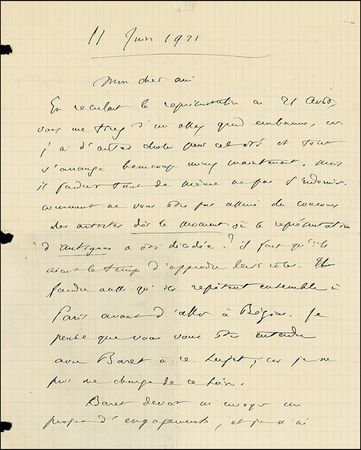 11 Juin 1921
Mon cher ami
En reculant la représentation au 21 Août,
vous me tirez d'un assez grand embarras, car
j'ai d'autres choses pour cet été et tout
s'arrange beaucoup mieux maintenant. Mais
il faudrait tout de même ne pas s'endormir.
Comment ne vous êtes pas assuré du concours
des artistes dès le moment où la représentation
d'Antigone a été décidée? il faut qu'ils
aient le temps d'apprendre leurs rôles. Il
faudra aussi qu'ils répètent ensemble à
Paris avant d'aller à Béziers. Je
pense que vous vous êtes entendu
avec Baret à ce sujet, car je ne
puis me charger de ce soin.
Baret devait m'envoyer un
projet d'engagements, et je n'ai